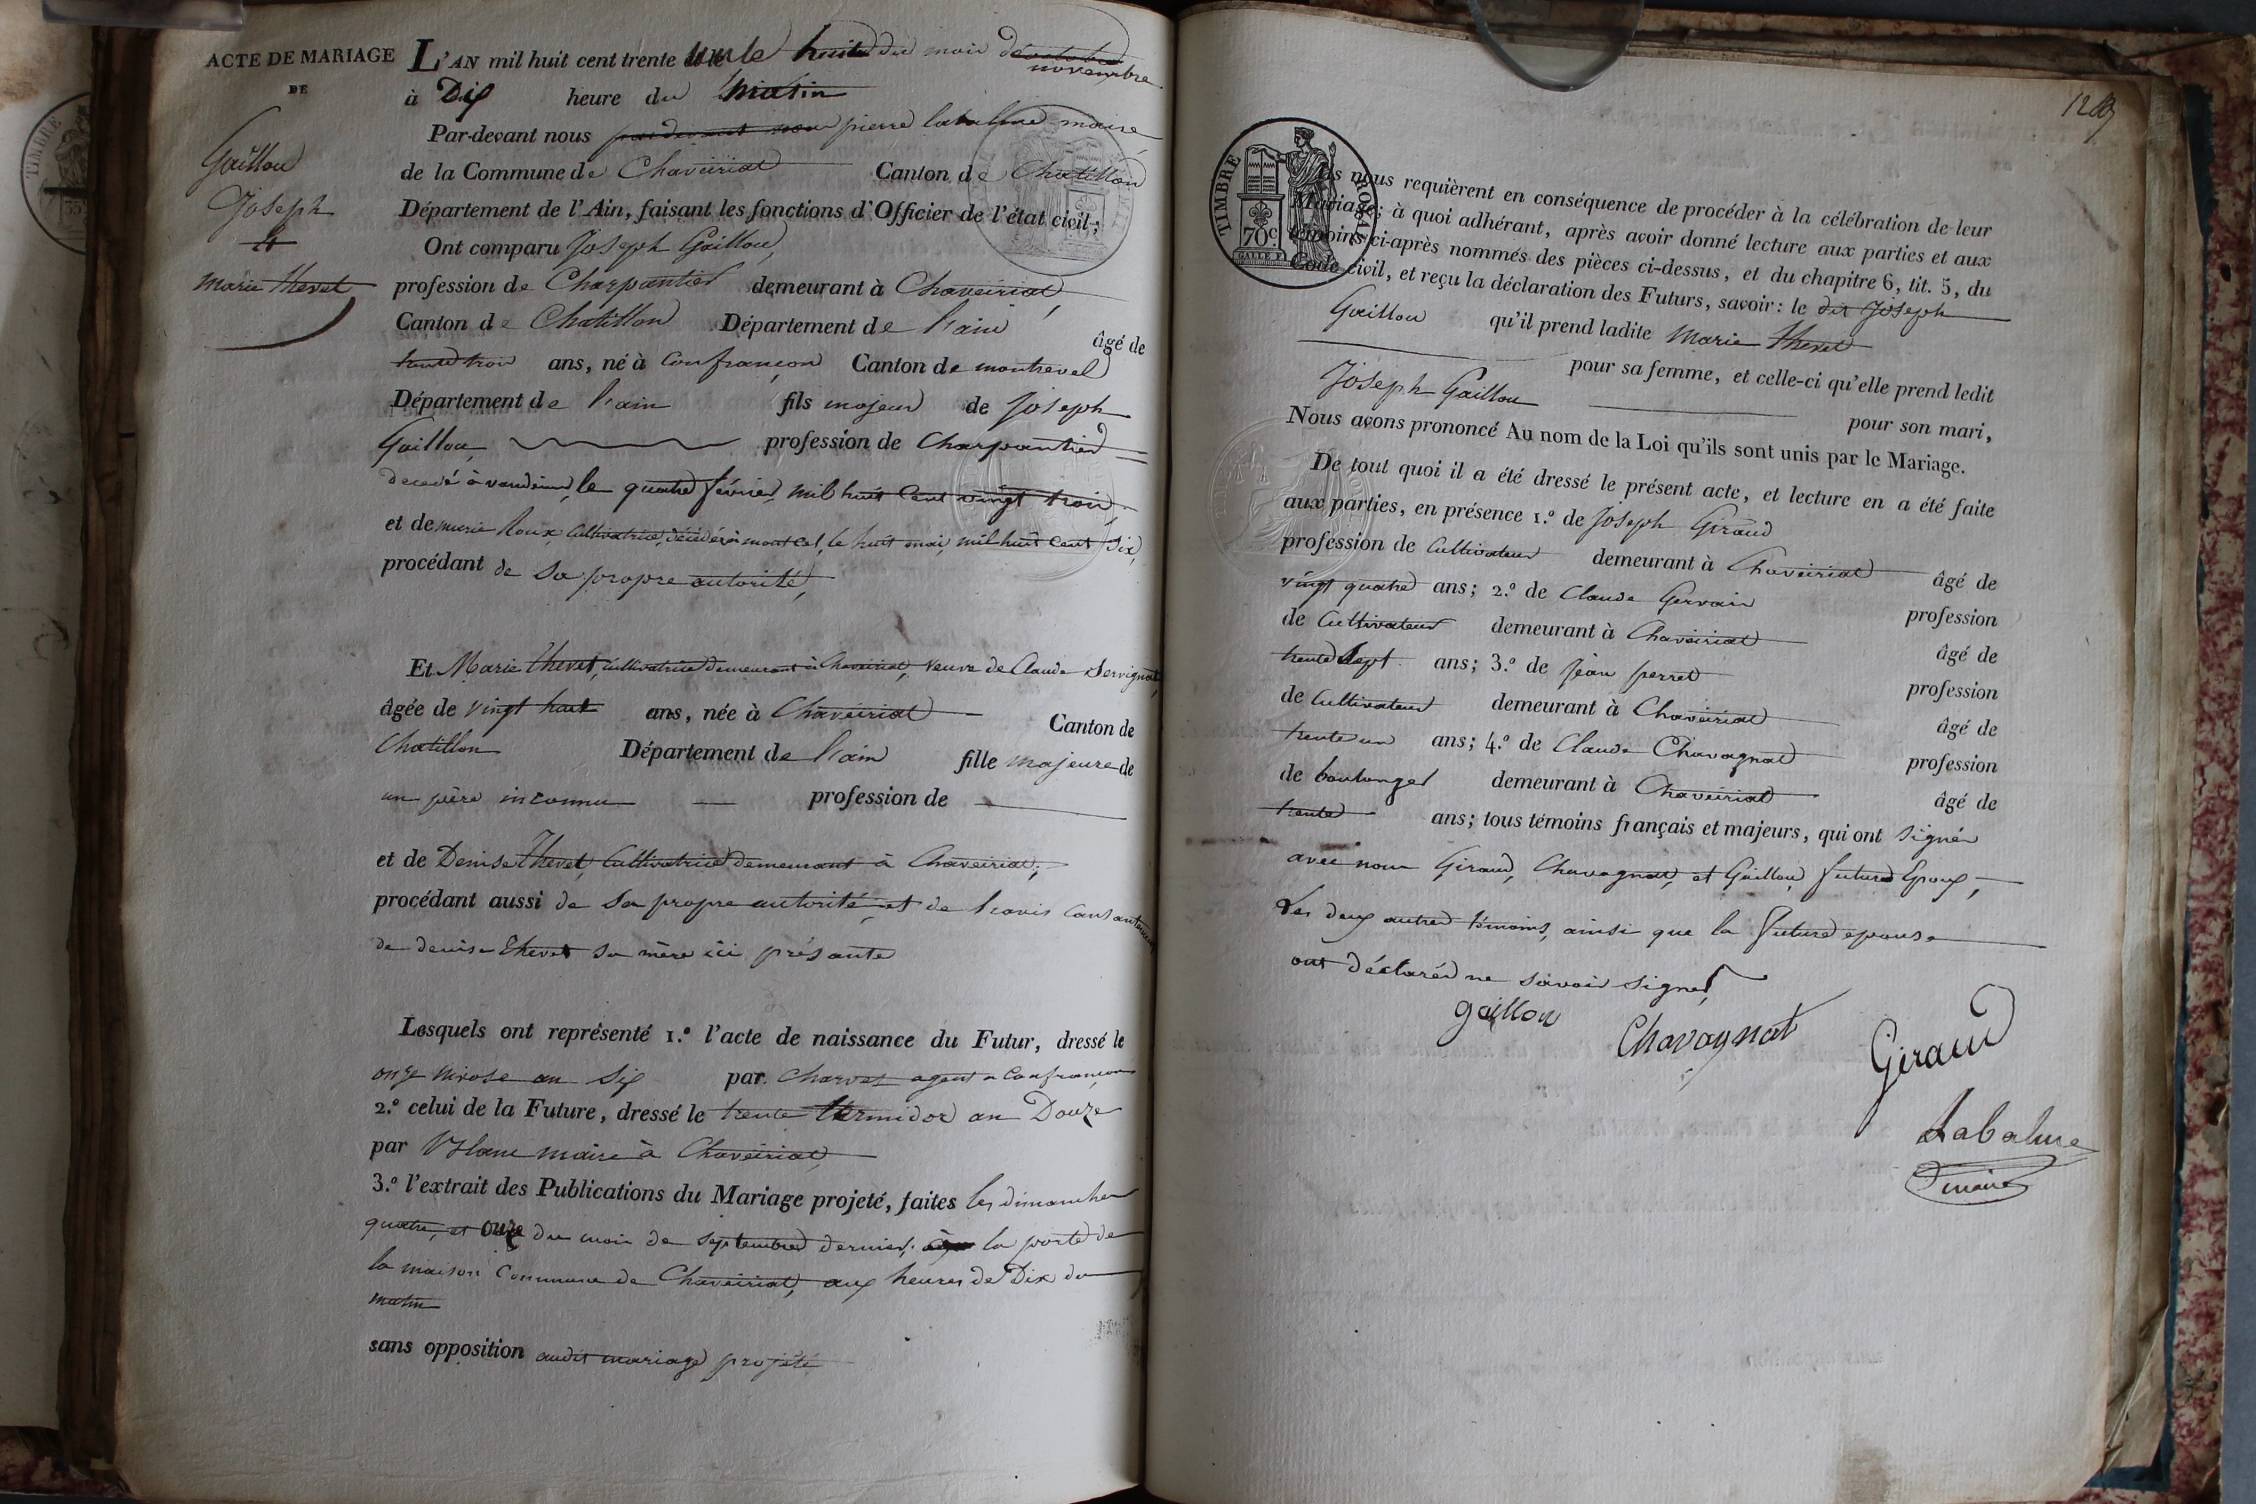 ACTE DE MARIAGE
DE
Gaillou
Joseph
et
marie thevet
L'AN mil huit cent trente un le huit du mois d'octobre
novembre
à Dix heure du matin
Par-devant nous pardevant nous pierre labalme maire
de la Commune de Chaveiriat Canton de Chatillon
Département de l'Ain, faisant les fonctions d'Officier de l'état civil;
Ont comparu Joseph Gaillou,
profession de Charpantier demeurant à Chaveiriat,
Canton de Chatillon Département de l'ain âgé de
trente trois ans, né à confrançon Canton de montrevel
Département de l'ain fils majeur de Joseph
Gaillou, profession de Charpantier
decedé à vandeins, le quatre février, mil huit cent vingt trois,
et de marie Roux, cultivatrice, décédée à montcet, le huit mai, mil huit cent six,
procédant de sa propre autorité,
Et Marie thevet, cultivatrice demeurant à Chaveiriat, veuve de Claude Servignat,
âgée de vingt huit ans, née à Chaveiriat Canton de
Chatillon Département de l'ain fille majeure de
un père inconnu profession de
et de Denise thevet, Cultivatrice demeurant à Chaveiriat,
procédant aussi de sa propre autorité, et de l'avis
de denise thevet sa mère ici présante
Lesquels ont représenté 1.° l'acte de naissance du Futur, dressé le
onze nivose an six par Charvet agent a Confrançon
2.° celui de la Future, dressé le trente thermidor an Douze
par Blanc maire à Chaveiriat,
3.° l'extrait des Publications du Mariage projeté, faites les dimanches
quatre, et onze du mois de septembre dernier, la porte de
la maison Commune de Chaveiriat, aux heures de Dix du
matin
sans opposition audit mariage projeté
1269
TIMBRE ROYAL
70c
Ils nous requièrent en conséquence de procéder à la célébration de leur
Mariage; à quoi adhérant, après avoir donné lecture aux parties et aux
témoins ci-après nommés des pièces ci-dessus, et du chapitre 6, tit. 5, du
Code civil, et reçu la déclaration des Futurs, savoir: le dit Joseph
Gaillou qu'il prend ladite Marie thevet
pour sa femme, et celle-ci qu'elle prend ledit
Joseph Gaillou pour son mari,
Nous avons prononcé Au nom de la Loi qu'ils sont unis par le Mariage.
De tout quoi il a été dressé le présent acte, et lecture en a été faite
aux parties, en présence 1.° de Joseph Giraud
profession de Cultivateur demeurant à Chaveiriat âgé de
vingt quatre ans; 2.° de Claude Gervais profession
de Cultivateur demeurant à Chaveiriat âgé de
trente sept ans; 3.° de Jean perret profession
de Cultivateur demeurant à Chaveiriat âgé de
trente un ans; 4.° de Claude Chavagnat profession
de boulanger demeurant à Chaveiriat âgé de
trente ans; tous témoins français et majeurs, qui ont signés
avec nous Giraud, Chavagnat, et Gaillou, future Epoux,
Les deux autres témoins, ainsi que la future epouse
ont déclarés ne savoir signer,
gaillou
Chavagnat
Giraud
Labalme
maire